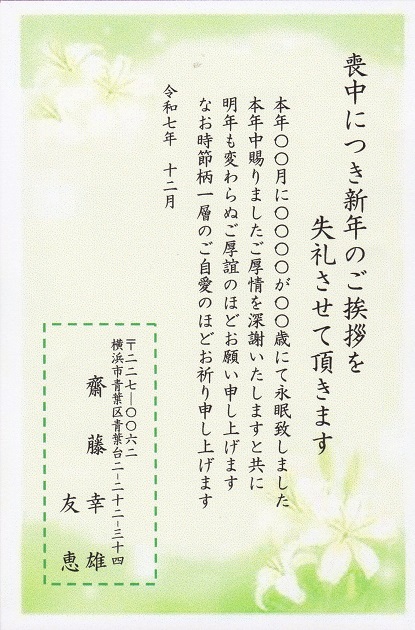 喪中につき新年のご挨拶を
失礼させて頂きます
本年〇〇月に〇〇〇〇が〇〇歳にて永眠致しました
本年中賜りましたご厚情を深謝いたしますと共に
明年も変わらぬご厚誼のほどお願い申し上げます
なお時節柄一層のご自愛のほどお祈り申し上げます
令和七年 十二月
〒二二七―〇〇六二
横浜市青葉区青葉台二―三十二―三十四
齋藤幸雄
友恵